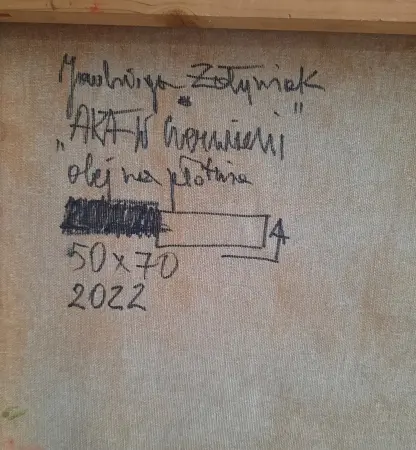 Jadwiga Żołyniak
"AKT W czerwieni"
olej na płótnie
4
50x70
2022